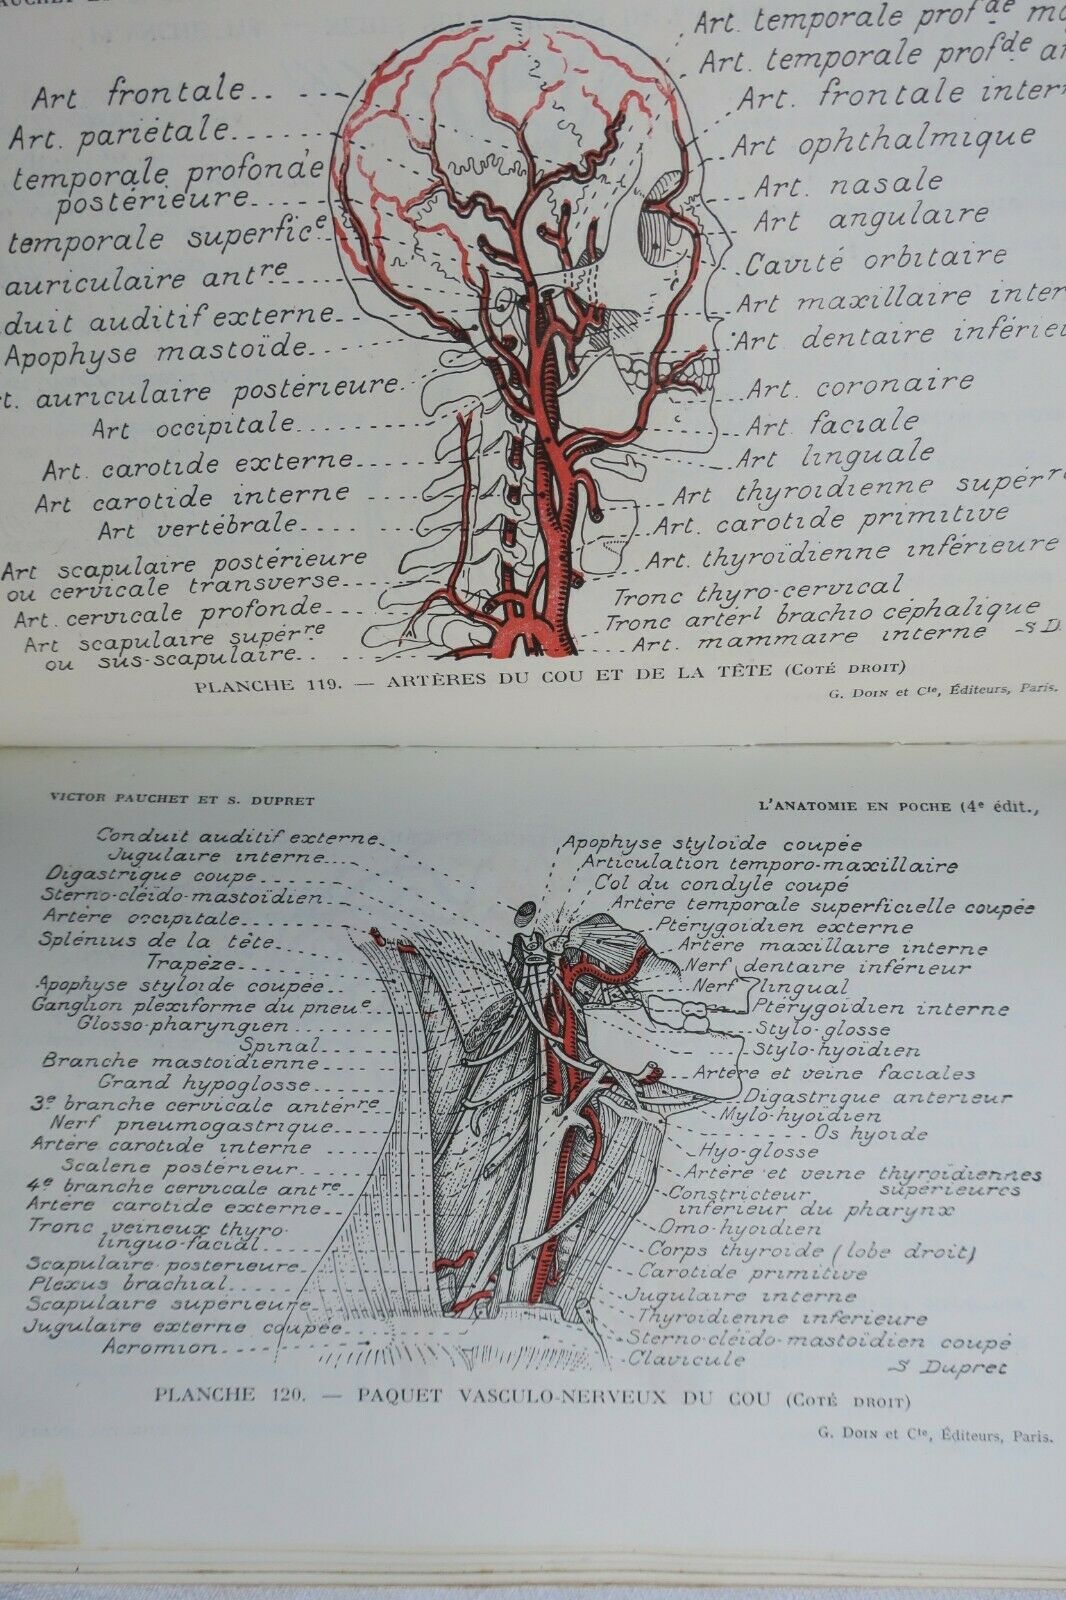 Art. temporale profde
Art. temporale profde
Art frontale
Art. frontale
Art. pariétale
Art ophthalmique
temporale profonde
postérieure
Art. nasale
temporale superficᵉ
Art angulaire
Cavité orbitaire
auriculaire antre
Art maxillaire
auditif externe
Art dentaire
Apophyse mastoïde
Art. coronaire
auriculaire postérieure
Art. faciale
Art occipitale
Art linguale
Art. carotide externe
Art thyroidienne supérre
Art carotide interne
Art. carotide primitive
Art vertébrale
Art. thyroïdienne inférieure
Art scapulaire postérieure
ou cervicale transverse
Tronc thyro-cervical
Art. cervicale profonde
Tronc artérl brachio céphalique
Art scapulaire supérre
ou sus-scapulaire
Art. mammaire interne S D.
PLANCHE 119. — ARTÈRES DU COU ET DE LA TÊTE (COTÉ DROIT)
G. DOIN et Cie, Éditeurs, Paris.
VICTOR PAUCHET ET S. DUPRET
L'ANATOMIE EN POCHE (4e édit.,
Conduit auditif externe
Jugulaire interne
Digastrique coupe
Sterno-cléido-mastoïdien
Artère occipitale
Splénius de la tête
Trapèze
Apophyse styloïde coupée
Ganglion plexiforme du pneue
Glosso-pharyngien
Spinal
Branche mastoïdienne
Grand hypoglosse
3e branche cervicale antérre
Nerf pneumogastrique
Artère carotide interne
Scalene postérieur
4e branche cervicale antre
Artère carotide externe
Tronc veineux thyro-
linguo-facial
Scapulaire posterieure
Plexus brachial
Scapulaire supérieure
Jugulaire externe coupée
Acromion
Apophyse styloïde coupée
Articulation temporo-maxillaire
Col du condyle coupé
Artère temporale superficielle coupée
Ptérygoïdien externe
Artère maxillaire interne
Nerf dentaire inférieur
Nerf lingual
Ptérygoïdien interne
Stylo-glosse
Stylo-hyoïdien
Artère et veine faciales
Digastrique anterieur
Mylo-hyoïdien
Os hyoide
Hyo-glosse
Artère et veine thyroïdiennes
supérieures
Constricteur
inférieur du pharynx
Omo-hyoïdien
Corps thyroïde (lobe droit)
Carotide primitive
Jugulaire interne
Thyroïdienne inferieure
Sterno-cléïdo-mastoïdien coupé
Clavicule
S Dupret
PLANCHE 120. — PAQUET VASCULO-NERVEUX DU COU (COTÉ DROIT)
G. DOIN et Cie, Éditeurs, Paris.